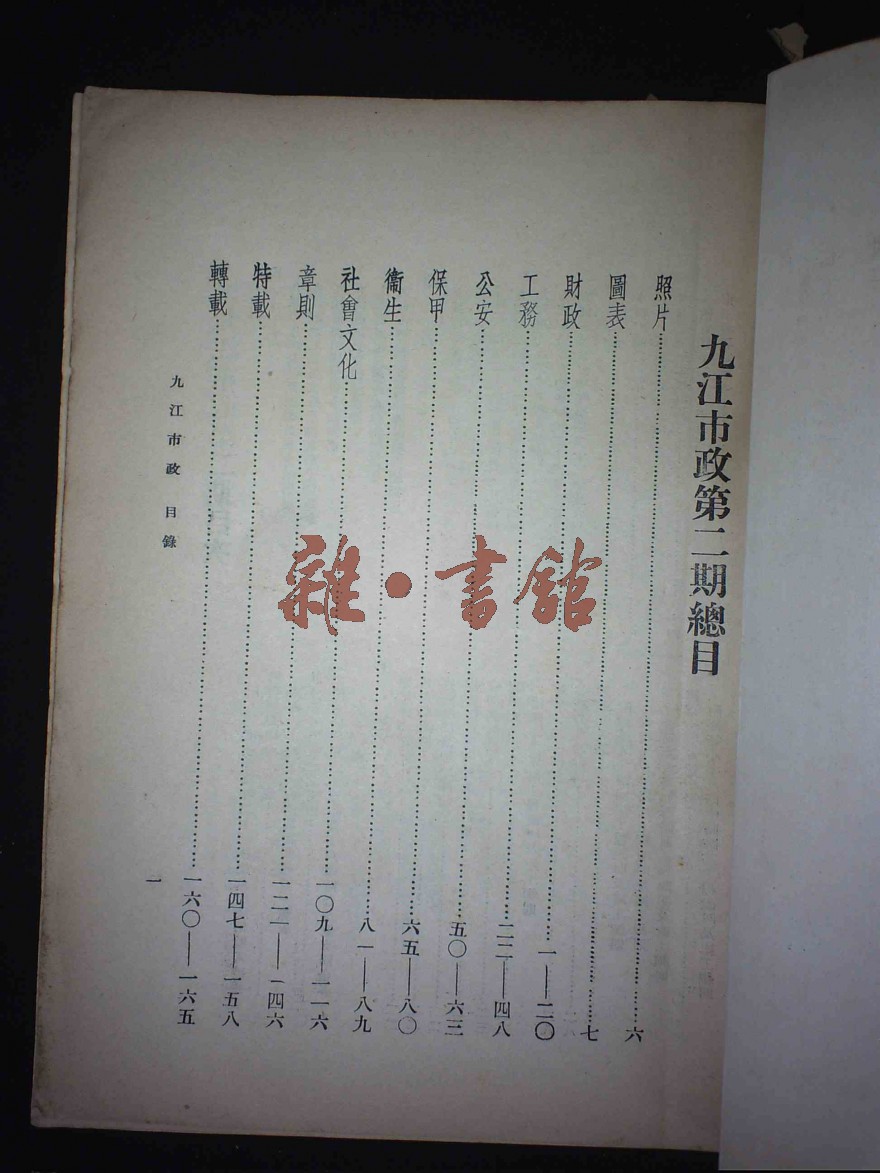 九江市政第二期總目
照片……六
圖表……七
財政……一——二〇
工務……二二——四八
公安……五〇——六三
保甲……六五——八〇
衞生……八一——八九
社會文化……一〇九——一一六
章則……一二一——一四六
特載……一四七——一五八
轉載……一六〇——一六五
九江市政 目錄
一
雜·書館